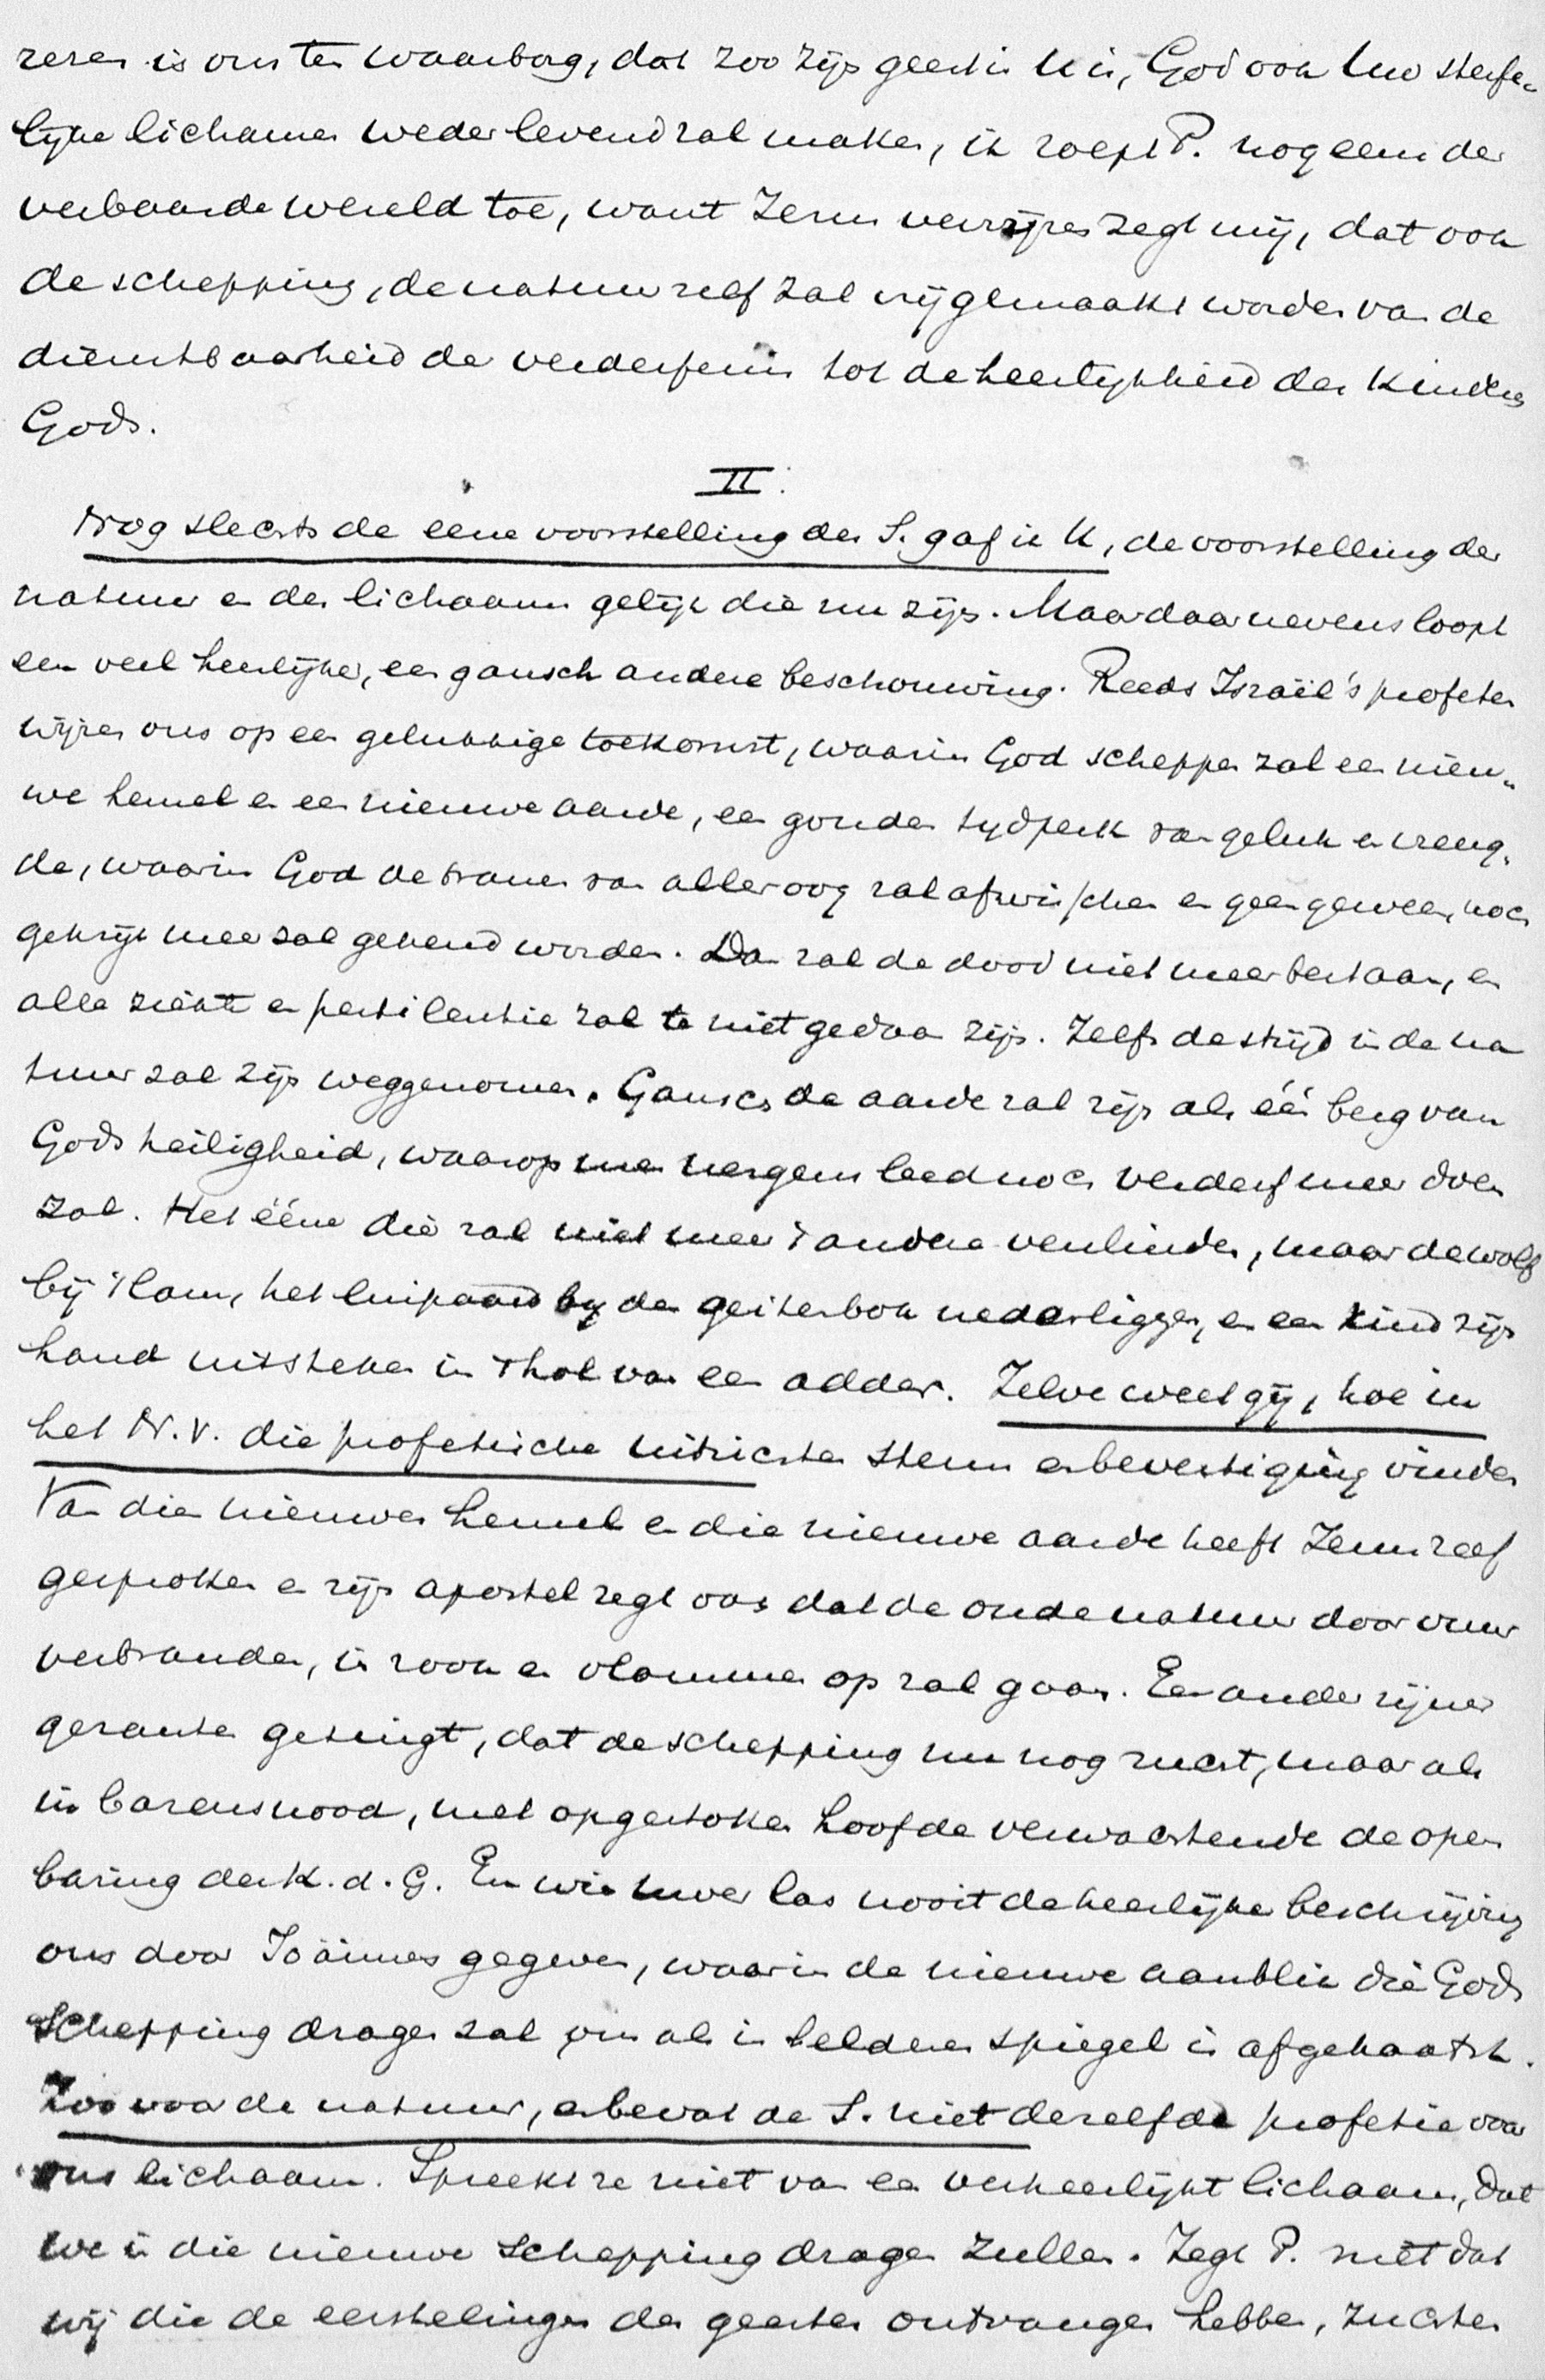 rezen is ons ten waarborg, dat zoo zijn geest in U is, God ook Uwe sterfe-
lijke lichamen weder levend zal maken, ik roept P. nog eens der
verbaasde wereld toe, want Jezus verrijzen zegt mij, dat ook
de schepping, de natuur zelf zal vrijgemaakt worden van de
dienstbaarheid der verderfenis tot de heerlijkheid der Kinderen
Gods.
II.
Nog slechts de eene voorstelling der S. gaf ik U, de voorstelling der
natuur en des lichaams gelijk die nu zijn. Maar daarnevens loopt
een veel heerlijker, een gansch andere beschouwing. Reeds Israël's profeten
wijzen ons op een gelukkige toekomst, waarin God scheppen zal een nieu-
we hemel en een nieuwe aarde, een gouden tydperk van geluk en vreug-
de, waarin God de tranen van aller oog zal afwisschen en geen geween, noch
gekrijt meer zal gehoord worden. Dan zal de dood niet meer bestaan, en
alle ziekte en pestilentie zal te niet gedaan zijn. Zelfs de strijd in de na
tuur zal zijn weggenomen. Gansch de aarde zal zijn als één berg van
Gods heiligheid, waarop men nergens leed noch verderf meer doen
zal. Het ééne dier zal niet meer 't andere verslinden, maar de wolf
bij 't lam, het luipaard by den geitenbok nederliggen, en een kind zijn
hand uitsteken in 't hol van een adder. Zelve weet gij, hoe in
het N.V. die profetische uitzichten steun en bevestiging vinden
Van dien nieuwen hemel en die nieuwe aarde heeft Jezus zelf
gesproken en zijn apostel zegt ons dat de oude natuur door vuur
verbranden, in rook en vlammen op zal gaan. Een ander zijner
gezanten getuigt, dat de schepping nu nog zucht, maar als
in barensnood, met opgestoken hoofde verwachtende de open
baring der K. d. G. En wie Uwer las nooit de heerlijke beschrijving
ons door Joännes gegeven, waarin de nieuwe aanblik die Gods
Schepping dragen zal ons als in helderen spiegel is afgekaatst.
Zoo voor de natuur, en bevat de S. niet dezelfde profetie voor
ons lichaam. Spreekt ze niet van een verheerlijkt lichaam, dat
we in die nieuwe Schepping dragen zullen. Zegt P. niet dat
wij die de eerstelingen des geestes ontvangen hebben, zuchten